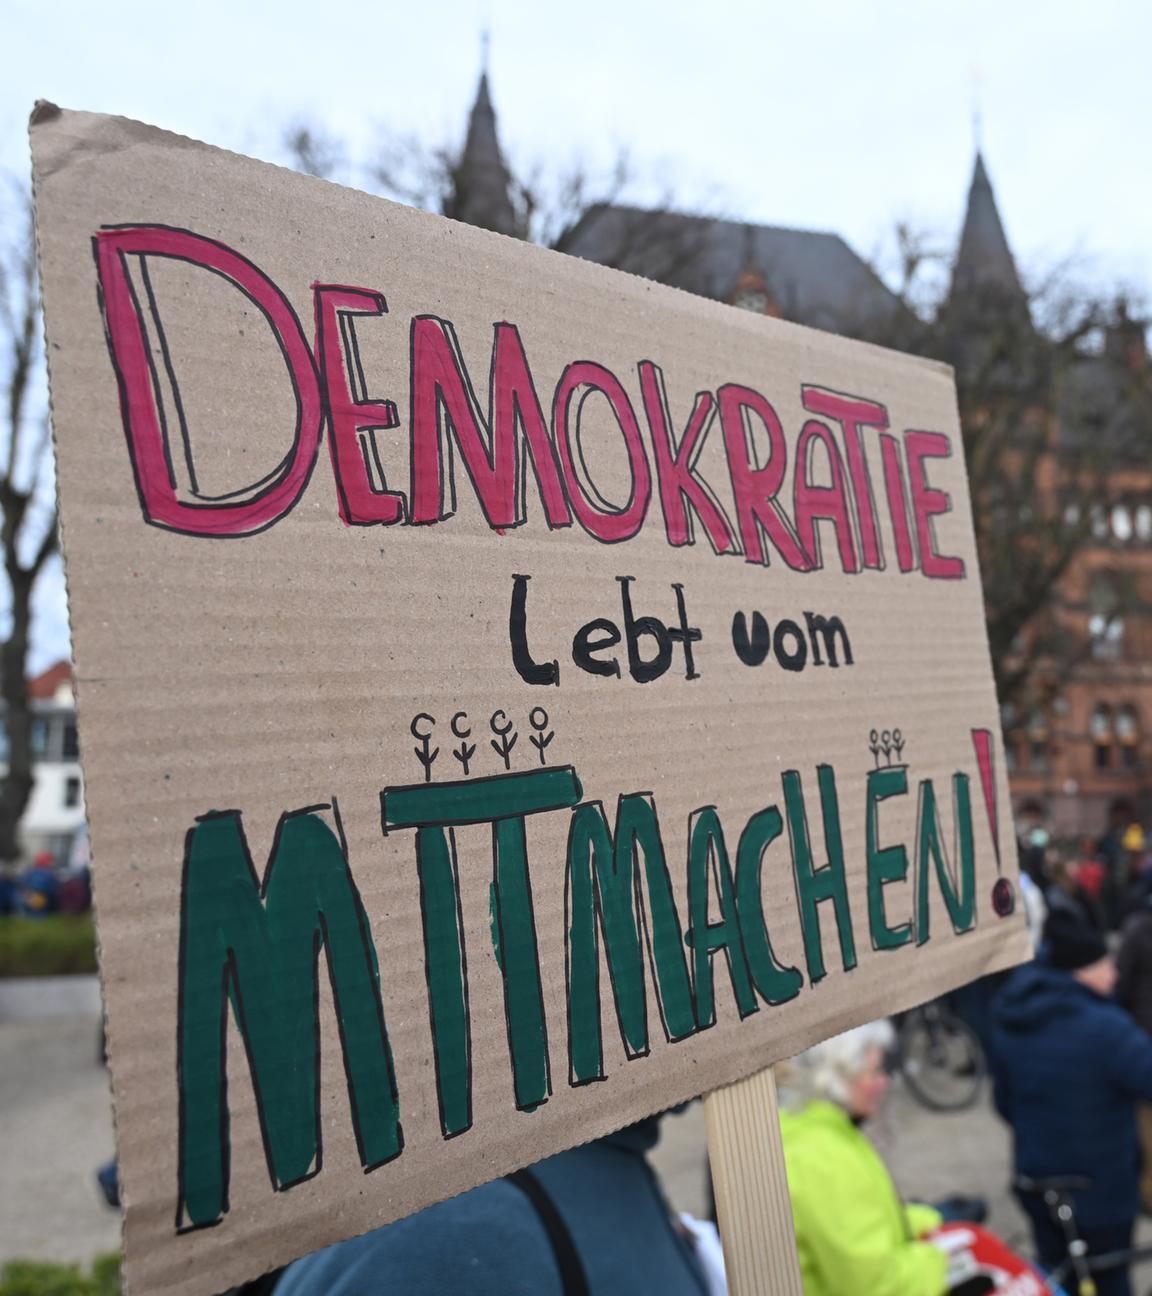 DEMOKRATIE
lebt vom
MITMACHEN!